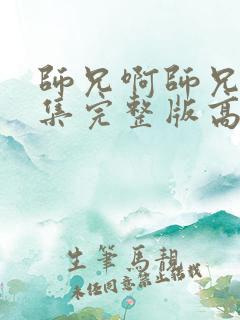 師兄啊師兄
集完整版高
生筆馬靚
未经同意禁止转载